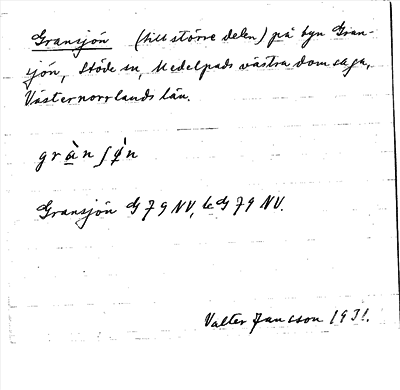 Gransjön (till större delen) på byn Gran-
sjön, Stöde sn, Medelpads västra domsaga,
Västernorrlands län.
gràn ʃǿn
Gransjön G 79 NV, le G 79 NV.
Valter Jansson 1931.